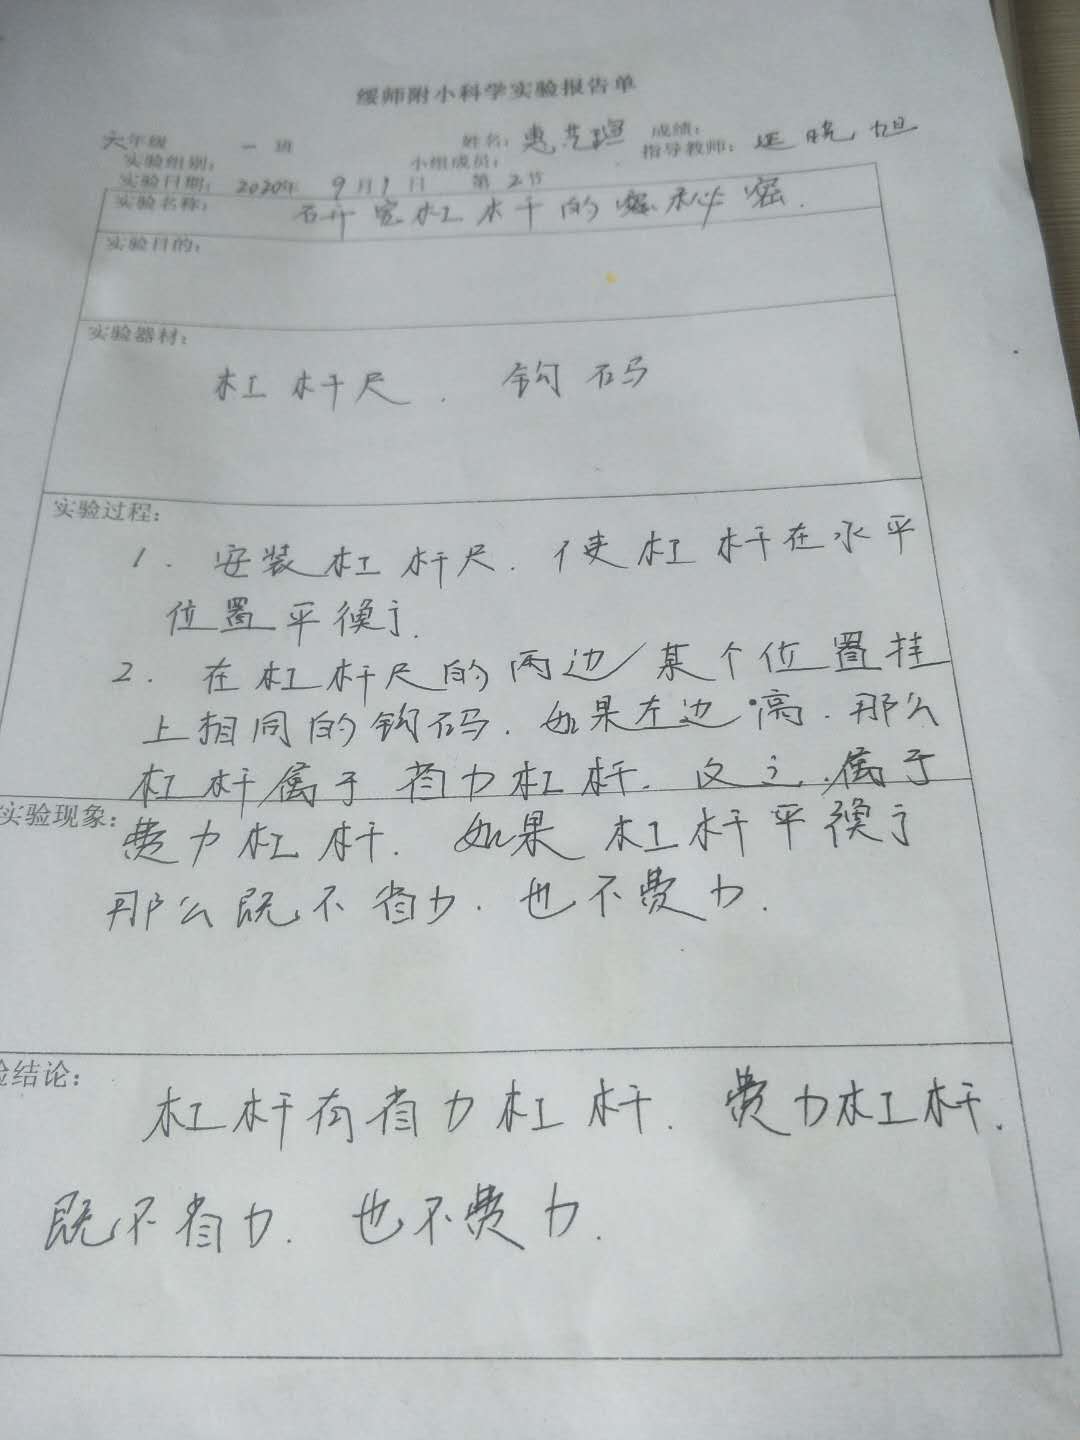 绥师附小科学实验报告单
六年级 一 班 姓名：惠艺 成绩：
实验组别： 小组成员： 指导教师：延晓旭
实验日期： 2020年 9月1日 第2节
实验名称： 研究杠杆的秘密.
实验目的：
实验器材：
杠杆尺. 钩码
实验过程：
1. 安装杠杆尺. 使杠杆在水平
位置平衡.
2. 在杠杆尺的两边某个位置挂
上相同的钩码. 如果左边高. 那么
杠杆属于省力杠杆. 反之. 属于
实验现象：
费力杠杆. 如果杠杆平衡
那么既不省力. 也不费力.
验结论：
杠杆有省力杠杆. 费力杠杆.
既不省力. 也不费力.